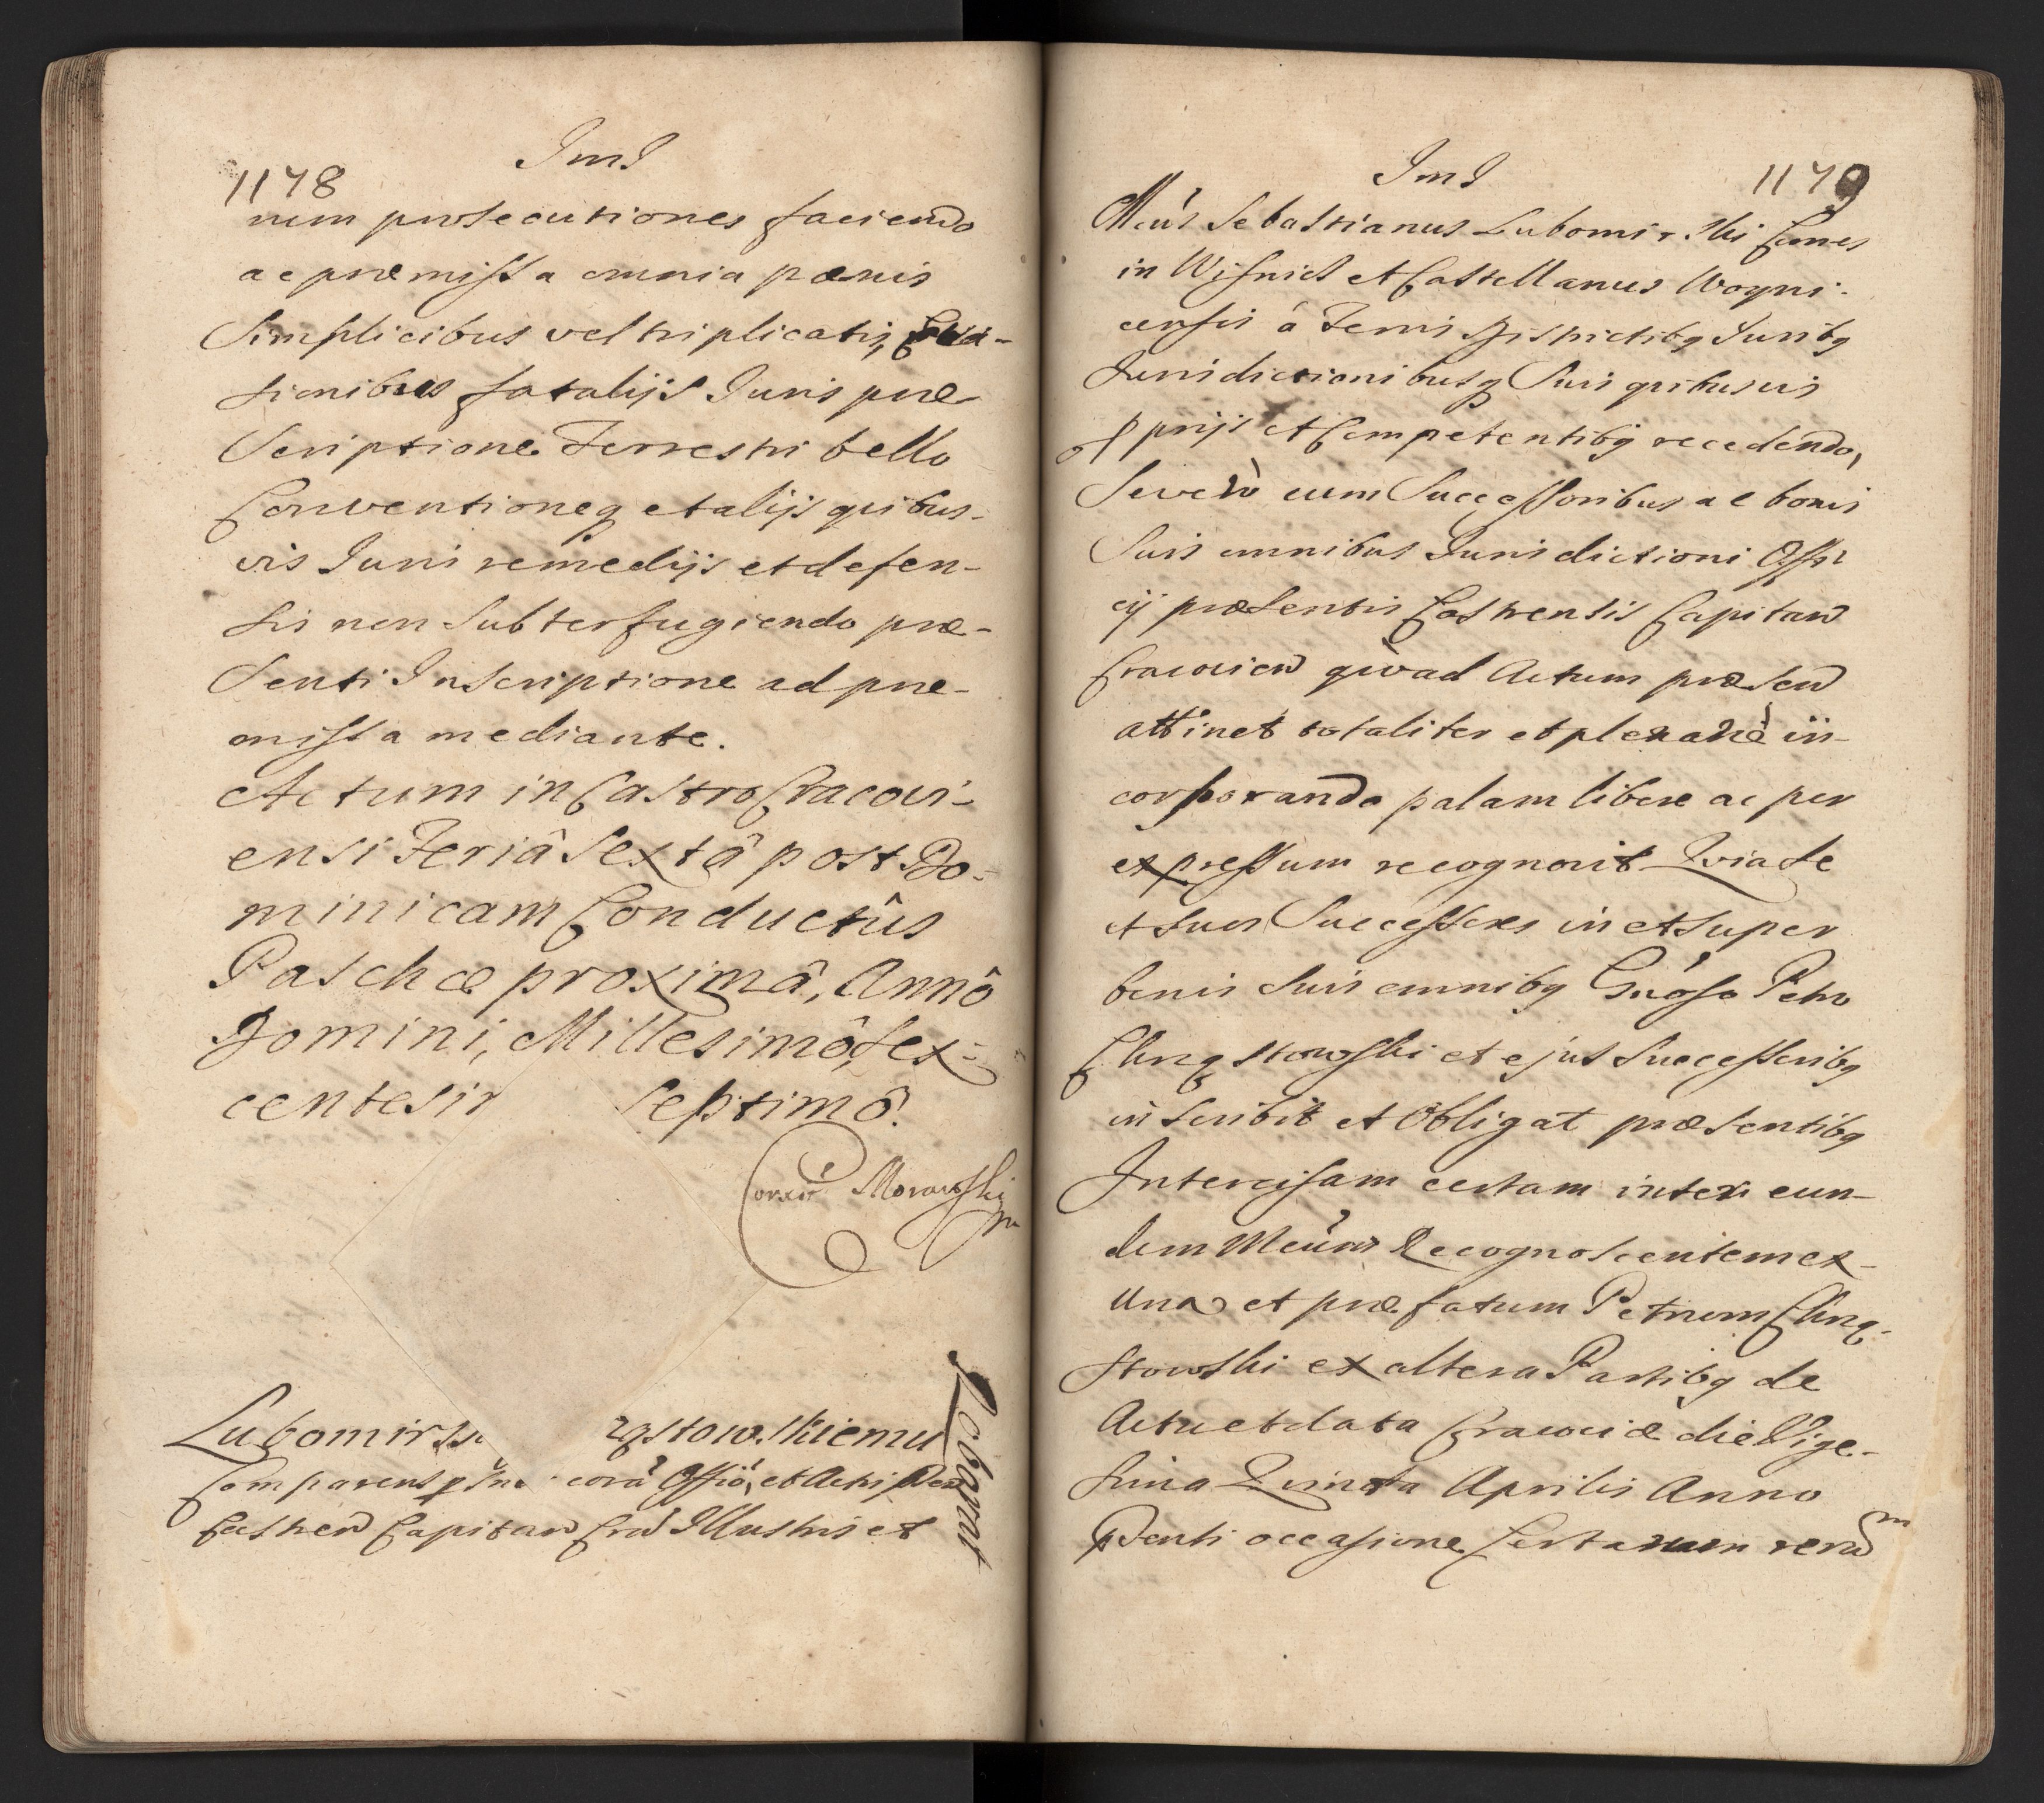 1178
Ims
rum prosecutiones faciendo
ac præmissa omnia pœnis
Simplicibus vel triplicatis,
tionibus fatalijs Juris præ
Scriptione Terrestri bello
Conventioneq et alijs quibus-
vis Juris remedijs et defen-
sis non Subterfugiendo præ-
Senti Inscriptione ad præ-
missa mediante.
Actum in Castro Cracovi-
ensi Feriâ Sextâ post Do-
minicam Conductûs
Paschæ proximâ, Annô
Domini, Millesimô, Sex-
centesi Septimô.
Morawski
Lubomirs zqstowskiemu
Roborat
Comparens coră Offiô, et Actis
Castren Capitan Crac Illustris et
Ims
1179
Sebastianus Lubomirski Comes
in Wisnicz et Castellanus Woyni-
censis â Terris Districtibq Juribq
Jurisdictionibusq Suis quibusvis
pprijs et Competentibq recedendo,
Seve cum Successoribus ac bonis
Suis omnibus Jurisdictioni Offi
cij præsentis Castrensis Capitan
Cracovien quoad Actum præsen
attinet totaliter et plenariè in-
corporando palam libere ac per
expressum recognovit Quia Se
et Suos Successores in et Super
bonis Suis omnibq Gnôso Petro
Chrzqstowski et ejus Successoribq
inscribit et Obligat præsentibq
Intercisam certam inter eun-
dem Recognoscentem ex-
una et præfatum Petrum Chrzq-
stowski ex altera Partibq de
Actu et data Cracoviæ die Vige-
sima Quinta Aprilis Anno
Pdenti occasione Certarum reru
m